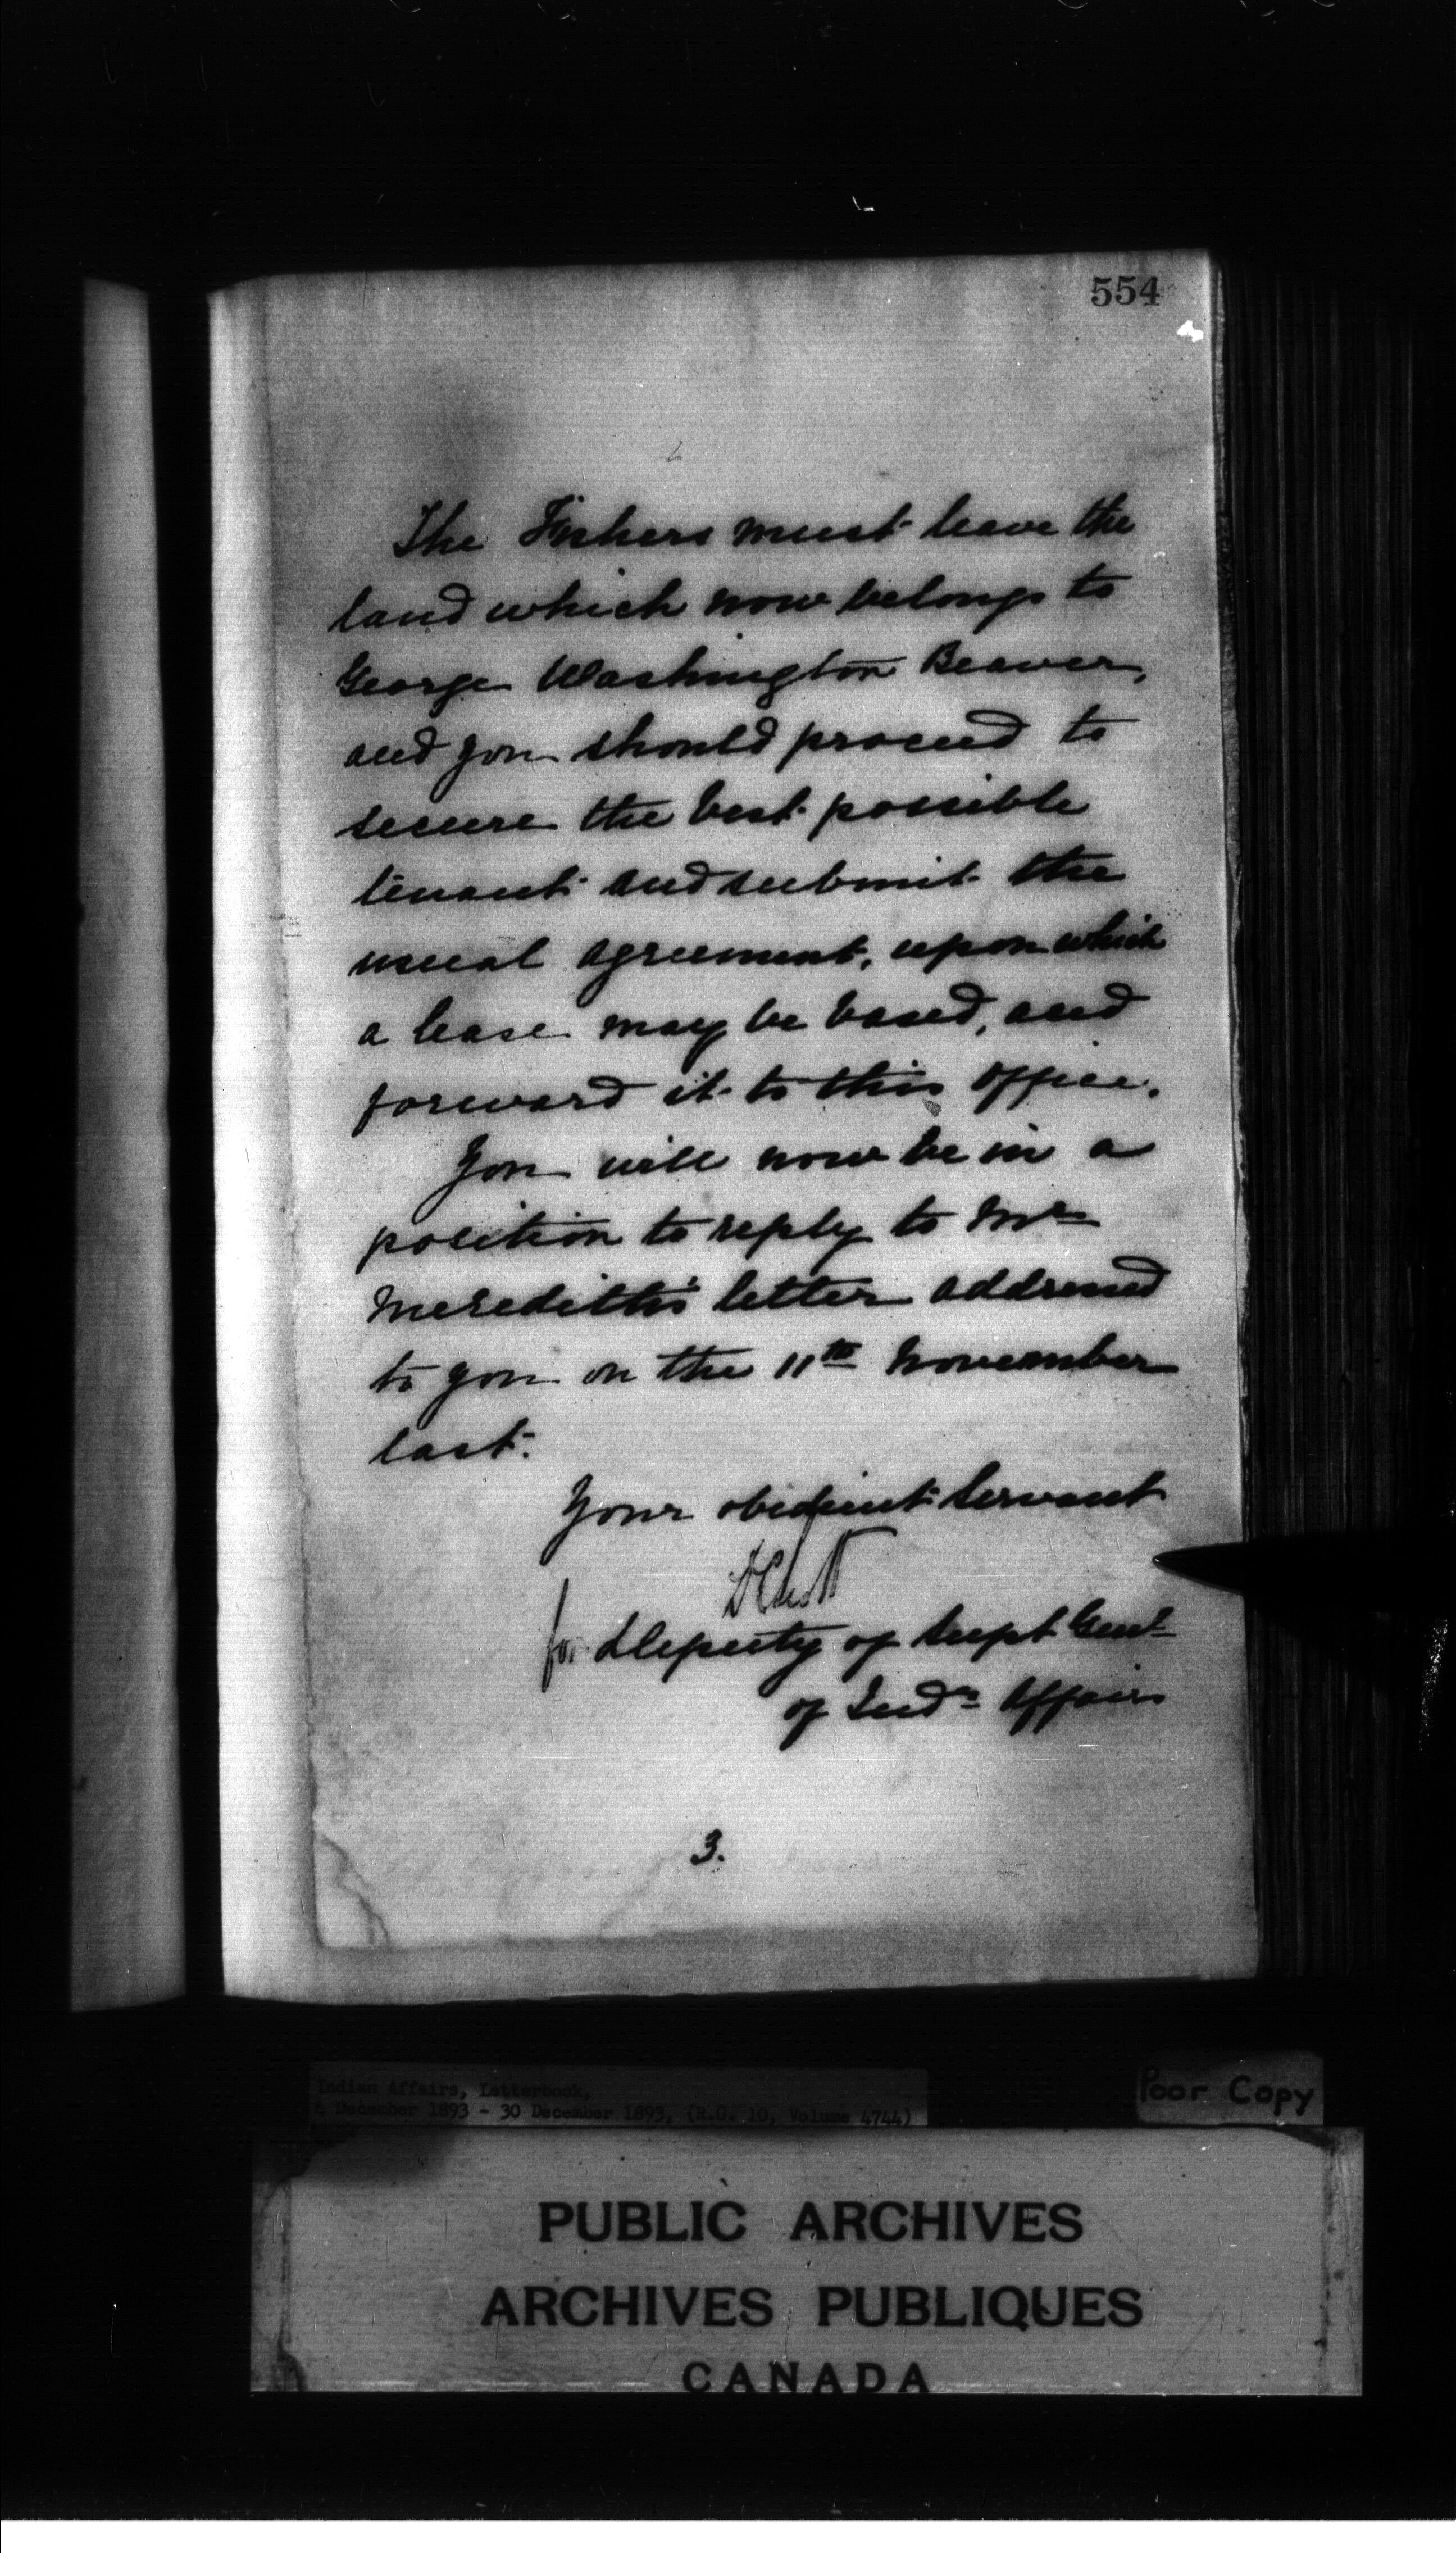 554
The Fishers must leave the
land which now belongs to
George Washington Beaver,
and you should proceed to
secure the best possible
tenant and submit the
usual agreement, upon which
a lease may be based, and
forward it to this office.
You will now be in a
position to reply to Mr
Meredith's letter addressed
to you on the 11th November
last.
Your obedient servant
for Deputy of Supt Genl
of Indn Affairs
3.
Indian Affairs, Letterbook,
4 December 1893 - 30 December 1893, (R.G. 10, Volume 4744)
Poor Copy
PUBLIC ARCHIVES
ARCHIVES PUBLIQUES
CANADA